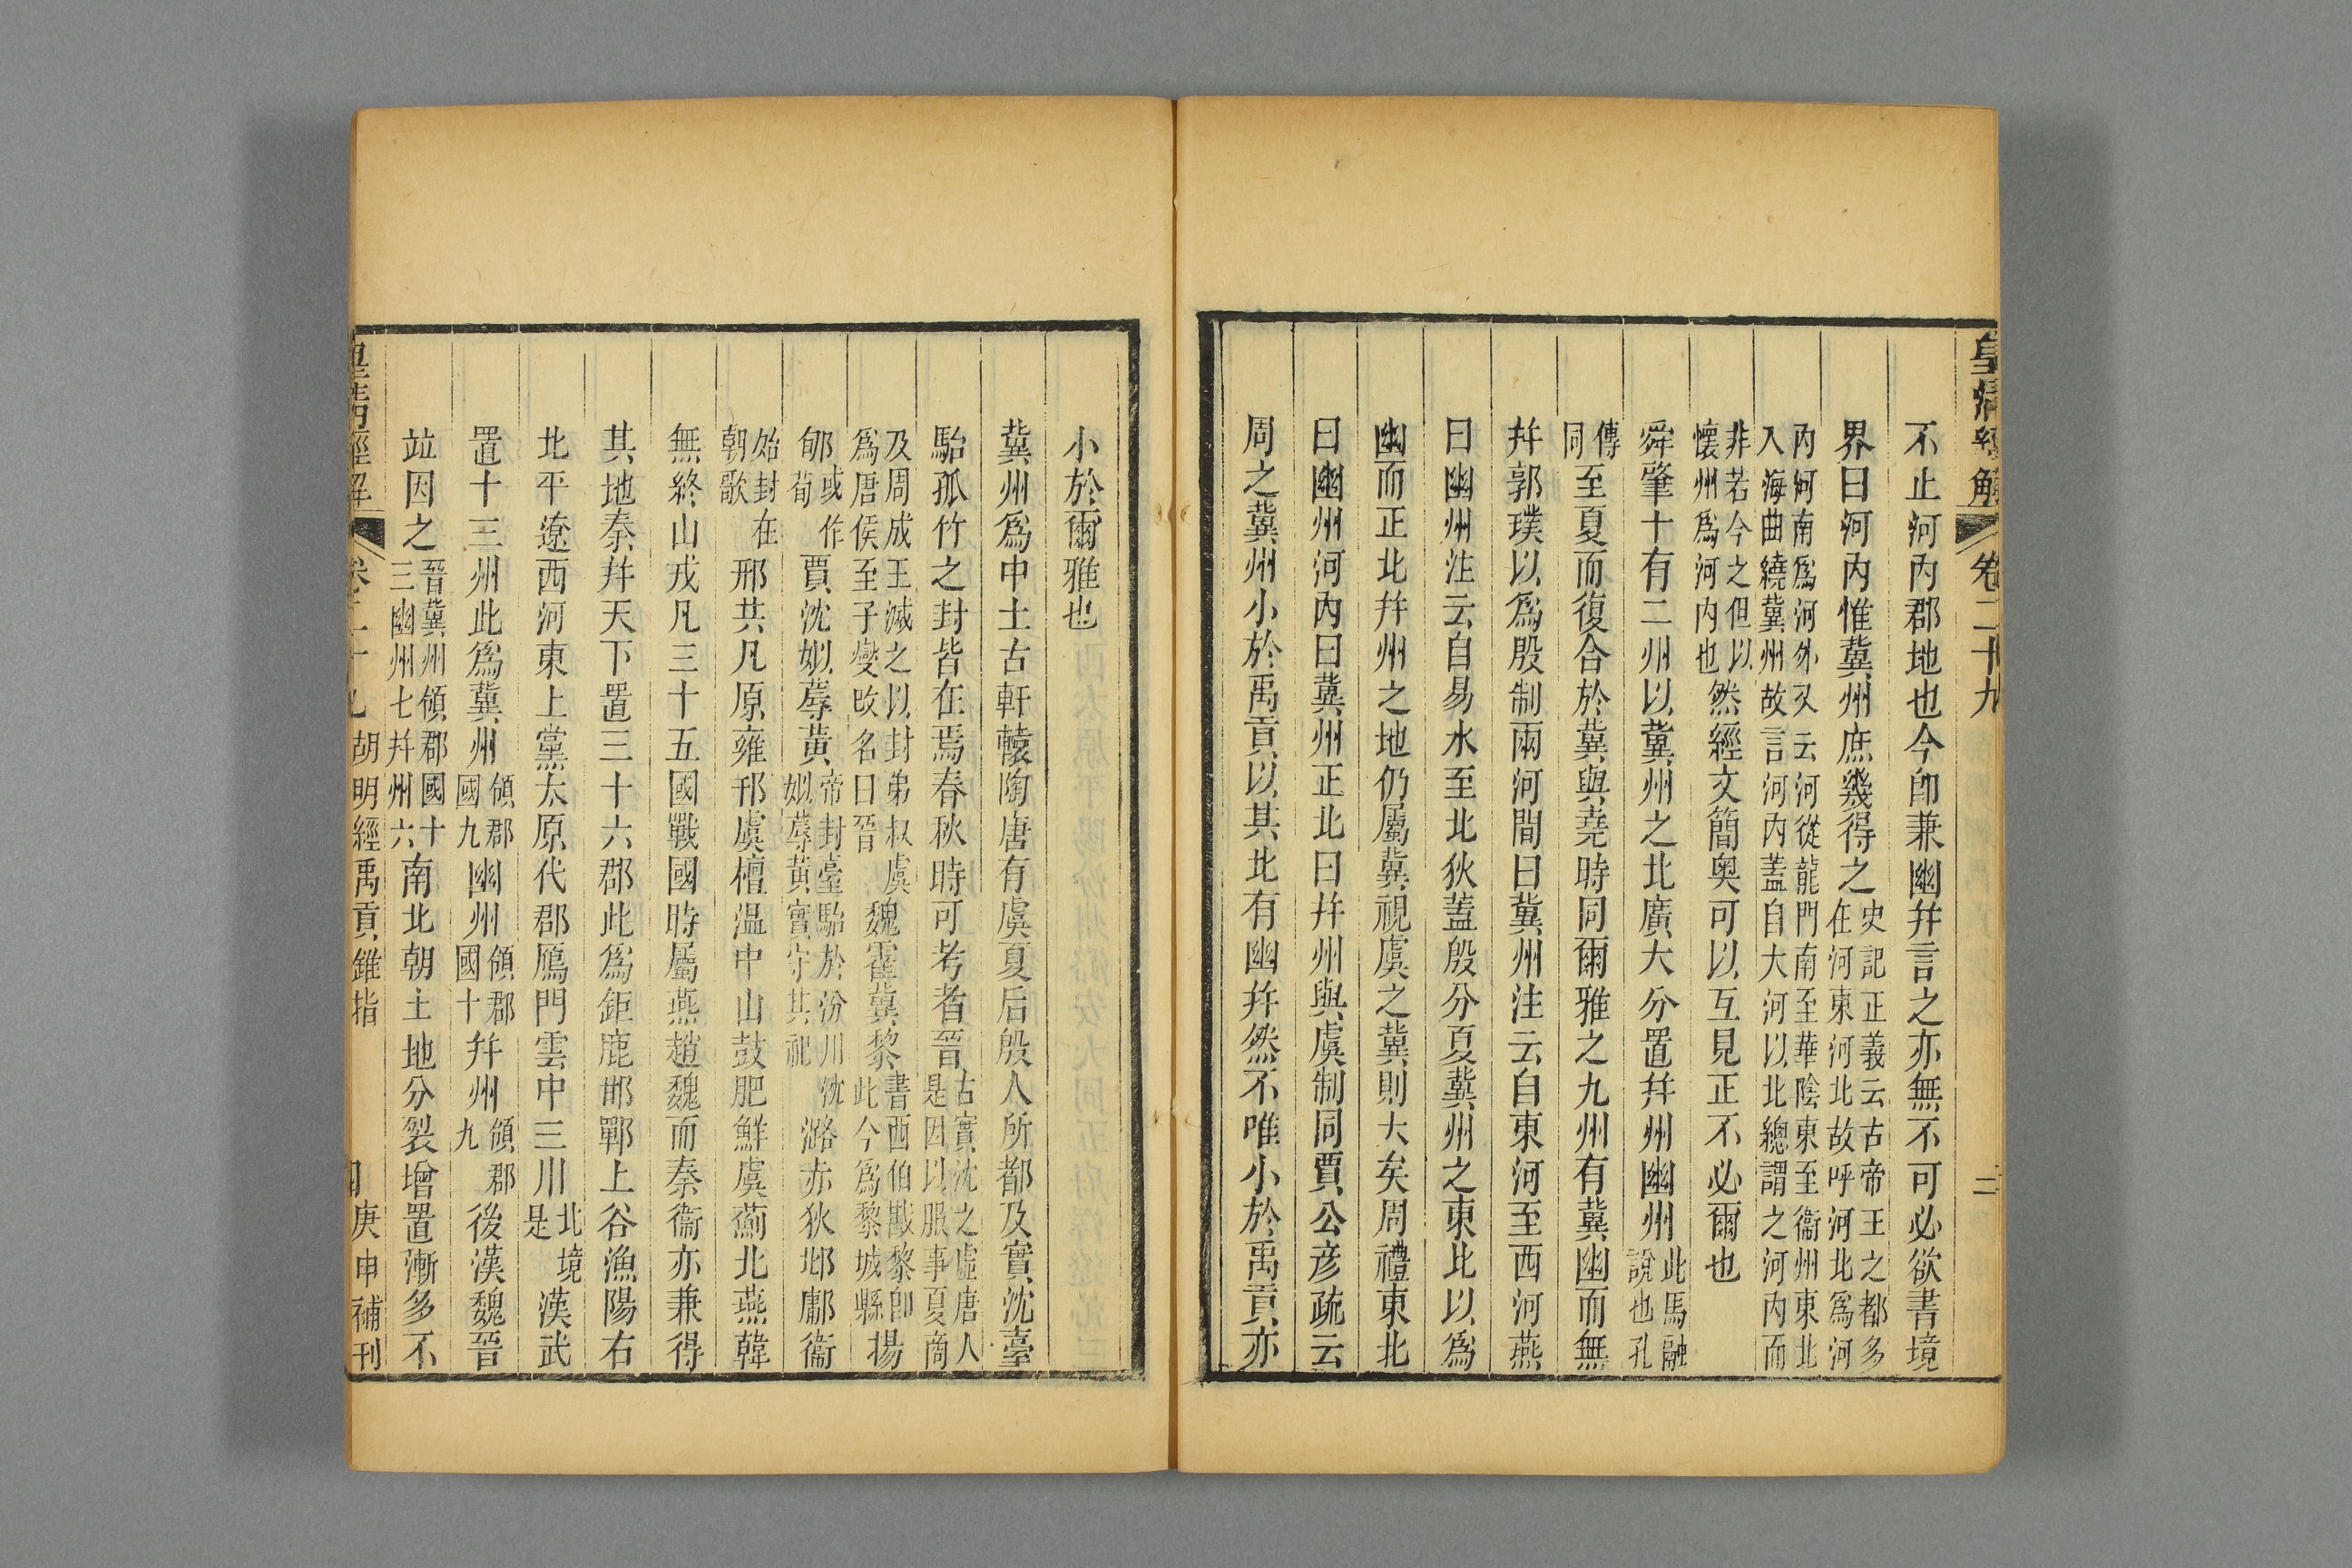 皇清經解 卷二十九 二
不止河內郡地也今卽兼幽幷言之亦無不可必欲書境
界曰河內惟冀州庶幾得之史記正義云古帝王之都多在河東河北故呼河北爲河
內河南爲河外又云河從龍門南至華陰東至衞州東北入海曲繞冀州故言河內蓋自大河以北總謂之河內而
非若今之但以懷州爲河內也然經文簡奥可以互見正不必爾也
舜肇十有二州以冀州之北廣大分置幷州幽州此馬融說也孔
傳同至夏而復合於冀與堯時同爾雅之九州有冀幽而無
幷郭璞以爲殷制兩河閒曰冀州注云自東河至西河燕
曰幽州注云自易水至北狄蓋殷分夏冀州之東北以爲
幽而正北幷州之地仍屬冀視虞之冀則大矣周禮東北
曰幽州河內曰冀州正北曰幷州與虞制同賈公彥疏云
周之冀州小於禹貢以其北有幽幷然不唯小於禹貢亦
小於爾雅也
冀州爲中土古軒轅陶唐有虞夏后殷人所都及實沈臺
駘孤竹之封皆在焉春秋時可考者晉古實沈之虛唐人是因以服事夏商
及周成王滅之以封弟叔虞爲唐侯至子燮改名曰晉魏霍冀黎書西伯戡黎卽此今爲黎城縣揚
郇或作荀賈沈姒蓐黃帝封臺駘於汾川沈姒蓐黃實守其祀潞赤狄邶鄘衞
始封在朝歌邢共凡原雍邗虞檀温中山鼓肥鮮虞薊北燕韓
無終山戎凡三十五國戰國時屬燕趙魏而秦衞亦兼得
其地秦幷天下置三十六郡此爲鉅鹿邯鄲上谷漁陽右
北平遼西河東上黨太原代郡鴈門雲中三川北境是漢武
置十三州此爲冀州領郡國九幽州領郡國十幷州領郡九後漢魏晉
竝因之晉冀州領郡國十三幽州七幷州六南北朝土地分裂增置漸多不
皇清經解 卷二十九 胡明經禹貢錐指 庚申補刊